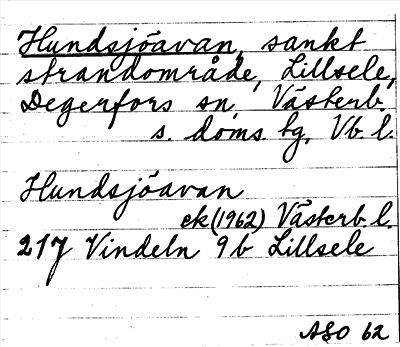 Hundsjöavan, sankt
strandområde, Lillsele,
Degerfors sn, Västerb.
s. doms. tg, Vb l.
Hundsjöavan
ek (1962) Västerb. l.
21J Vindeln 9b Lillsele
ASO 62